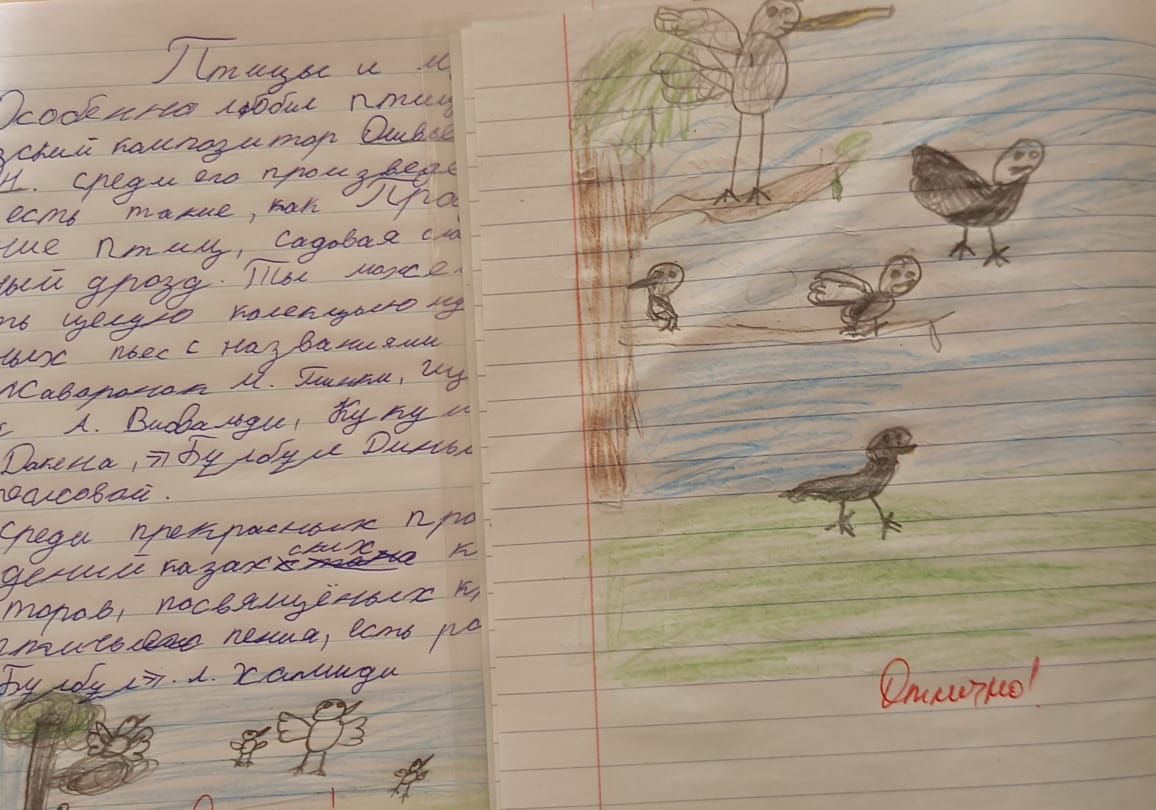 Птицы и м
Особенно любил птиц
зский композитор Оливье
Н. среди его произведе
есть такие, как Про
ние птиц, садовая сла
ный дрозд. Ты може
ть целую колекцыю му
ных пьес с названиями
Жаваронак М. Глинки, Щ
А. Вивальди, Куку и
Дакена, "Булбул Дины
реисовой.
Среди прекрасных про
дений казахских к
торов, посвящёных к
птичьего пения, есть ро
Булбул". Л. Хамиди
Отлично!